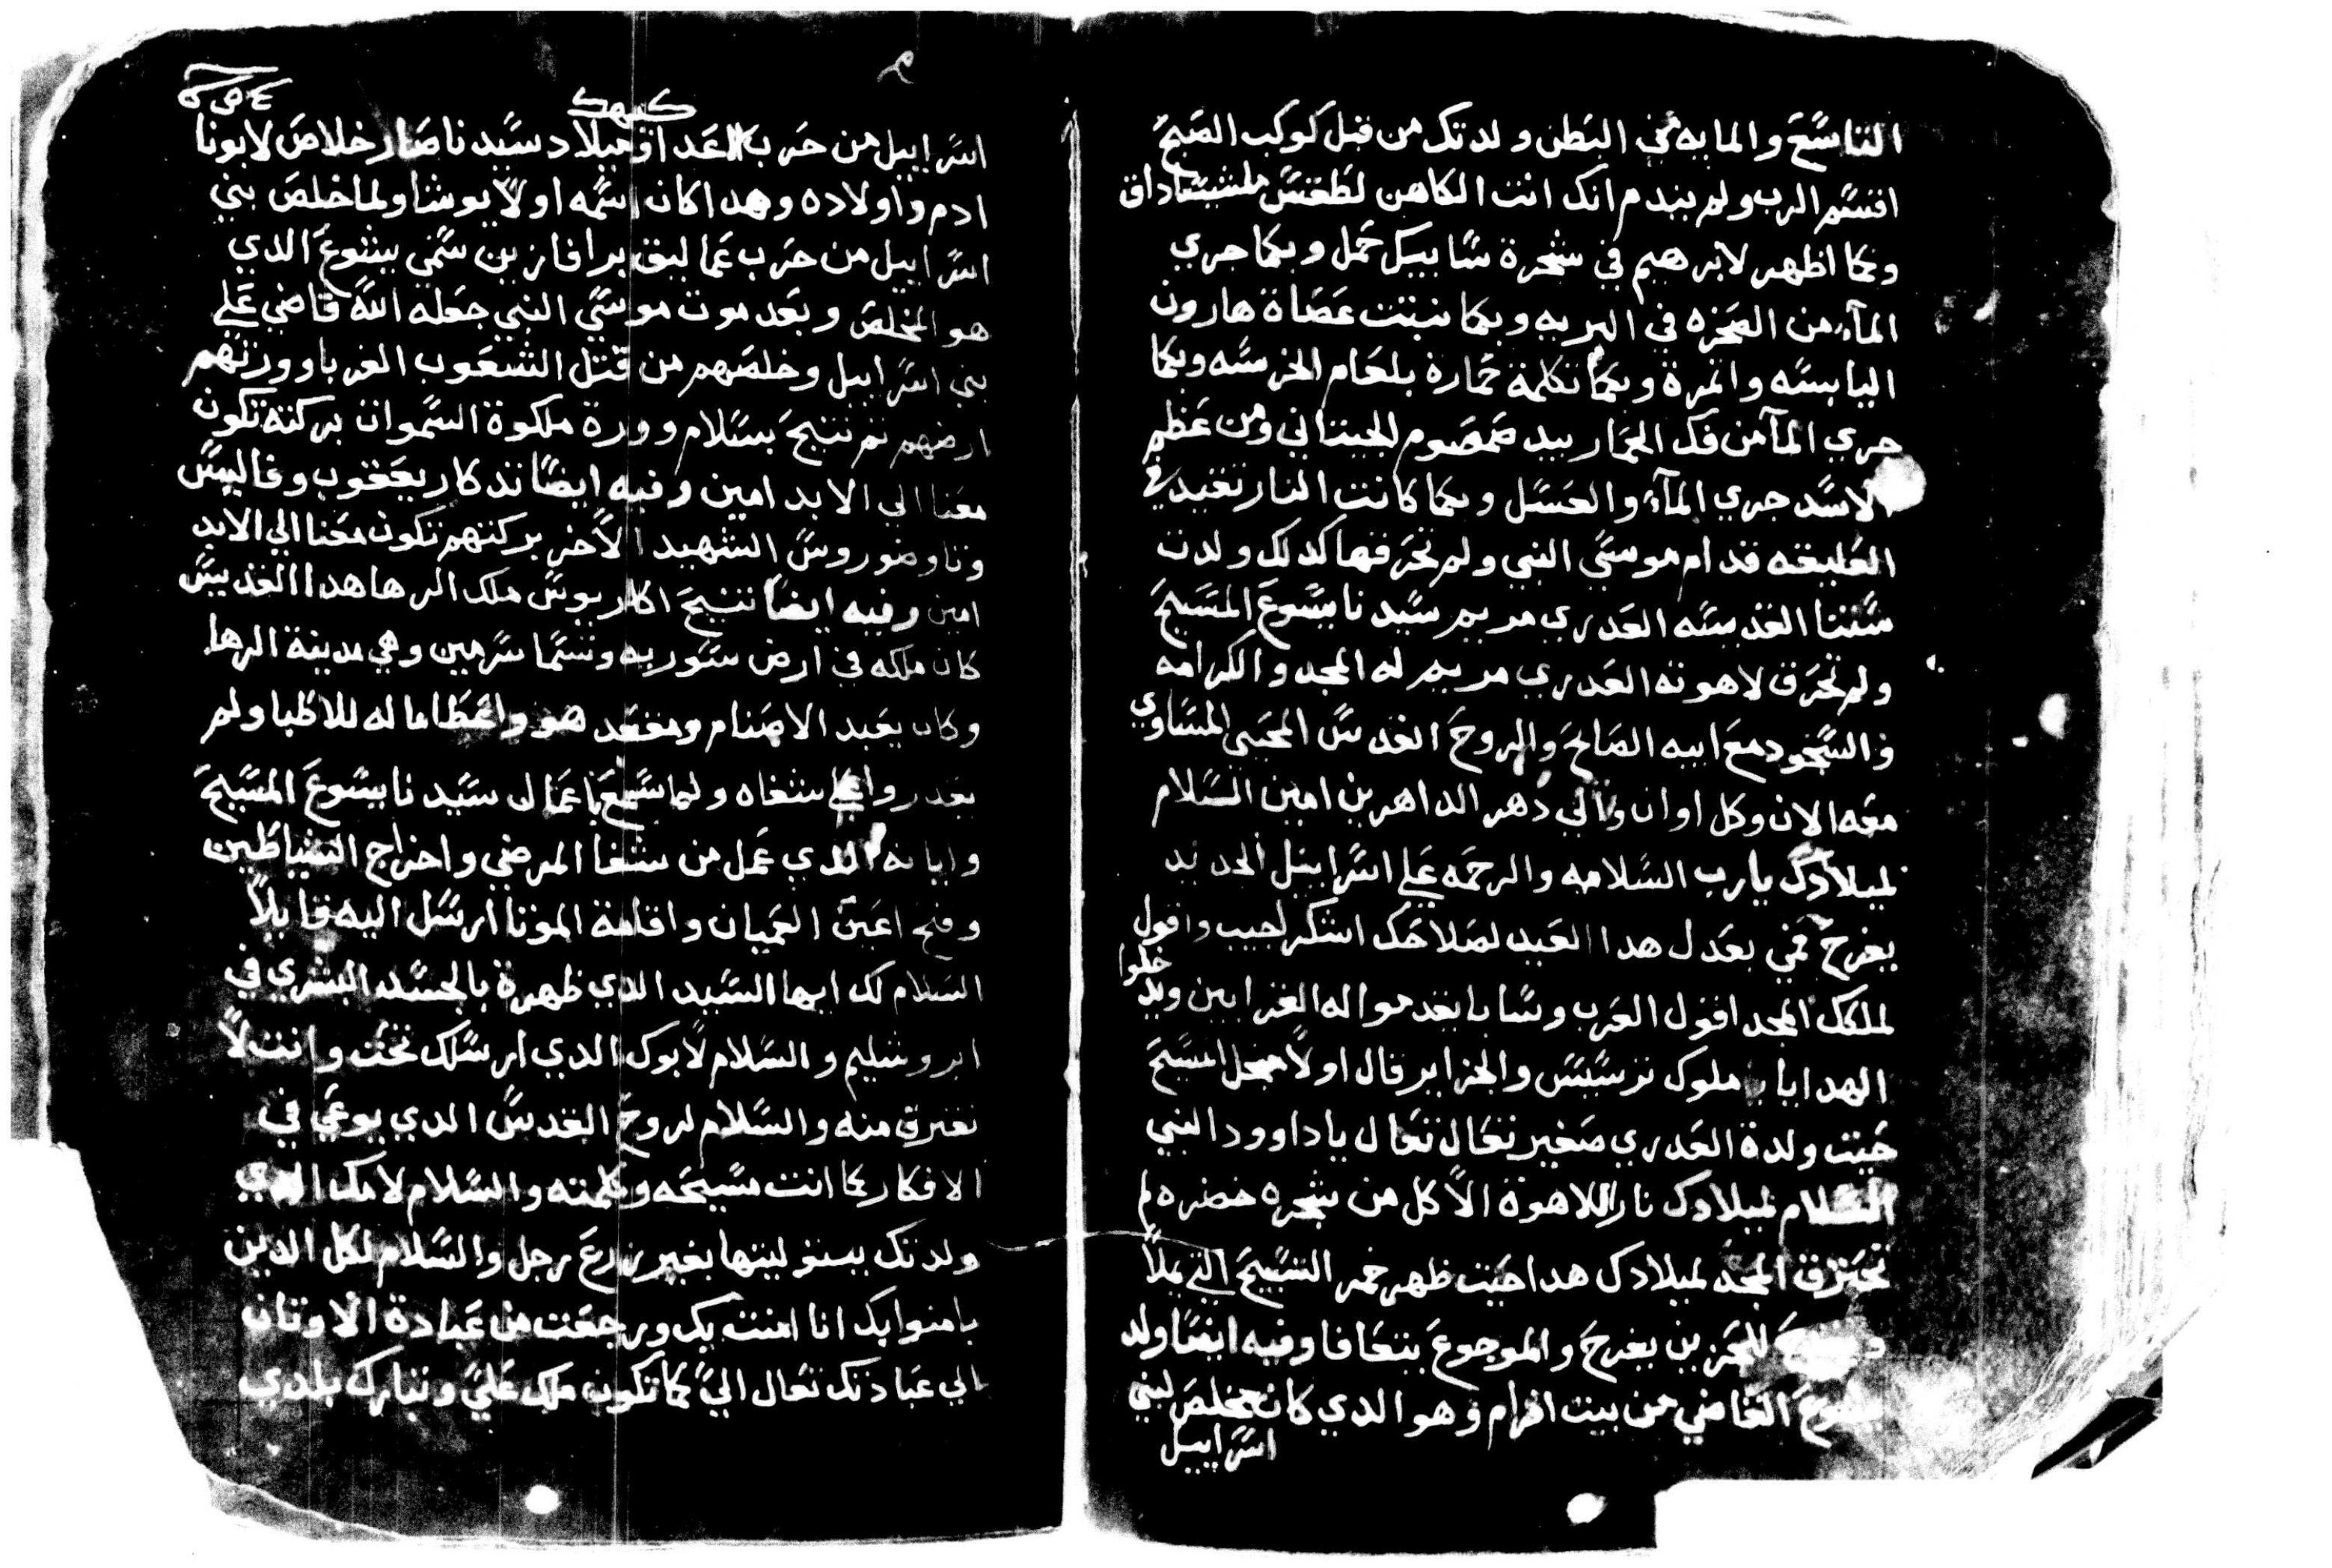 التاسع والمايه من البطن ولدتك من قبل كوكب الصبح
اقسم الرب ولم يندم انك انت الكاهن لطقس ملشيساداق
وكما اظهر لابرهيم في شجرة سابيك حمل وبكما جري
المآء من الصخره في البريه وبكما نبتت عصاة هارون
اليابسه واتمرة وبكما تكلمة حمارة بلعام الخرسه وبكما
جري المآ من فك الحمار بيد صمصوم الجبناني ومن عظم
الاسد جري المآء والعسل وبكما كانت النار تقيد في
العليقه قدام موسي النبي ولم تحرقها كدلك ولدت
ستنا القديسه العدري مريم سيدنا يسوع المسيح
ولم تحرق لاهوته العدري مريم له المجد والكرامه
والسجود مع ابيه الصالح والروح القدس المحيي المساوي
معه الان وكل اوان والي دهر الداهرين امين السلام
لميلادك يارب السلامه والرحمه علي اسراييل الجديد
يفرح فمي بعدل هدا العيد لصلاحك اشكر لجيب واقول
لملكك المجد اقول العرب وسابا يقدموا له القرابين ويدخلوا
الهدايا ملوك ترسيس والجزاير قال اولا مبجل المسيح
حيت ولدة العدري صغير تعال تعال يا داوود النبي
السلام لميلادك نار اللاهوة الاكل من شجره خضره لم
تحترق المجد لميلادك هدا حيت ظهر خمر التسبيح التي يملا
للحزين يفرح والموجوع يتعافا وفيه ايضا ولد
يشوع القاضي من بيت افرام وهو الدي كان مخلص لبني
اسراييل
كيهك
اسراييل من حرب العدا وميلاد سيدنا صار خلاص لابونا
ادم واولاده وهدا كان اسمه اولا يوشا ولما خلص بني
اسراييل من حرب عماليق برافازين سمي يشوع الدي
هو المخلص وبعد موت موسي النبي جعله الله قاضي علي
بني اسراييل وخلصهم من قتل الشعوب الغربا وورتهم
ارضهم تم تنيح بسلام وورة ملكوة السموات بركته تكون
معنا الي الابد امين وفيه ايضا تدكار يعقوب وفاليس
وتاوضوروس الشهيد الاخر بركتهم تكون معنا الي الابد
امين وفيه ايضا تنيح اكاريوس ملك الرها هدا القديس
كان ملكه في ارض سوريه وتسما سرمين وهي مدينة الرها
وكان يعبد الاصنام ومقعد هو واعطا ماله للاطبا ولم
يقدروا علي شفاه ولما سمع باعمال سيدنا يسوع المسيح
واياته الدي عمل من شفا المرضي واخراج الشياطين
وفتح اعين العميان واقامة الموتا ارسل اليه قايلا
السلام لك ايها السيد الدي ظهرة بالجسد البشري في
ابروشليم والسلام لابوك الدي ارسلك تحت وانت لا
تفترق منه والسلام لروح القدس الدي يوعي في
الافكار كما انت مسيحه وكلمته والسلام لامك الدي
ولدتك ببتوليتها بغير زرع رجل والسلام لكل الدين
يامنوا بك انا امنت بك ورجعت من عبادة الاوتان
الي عبادتك تعال الي كما تكون ملك علي وتبارك بلدي